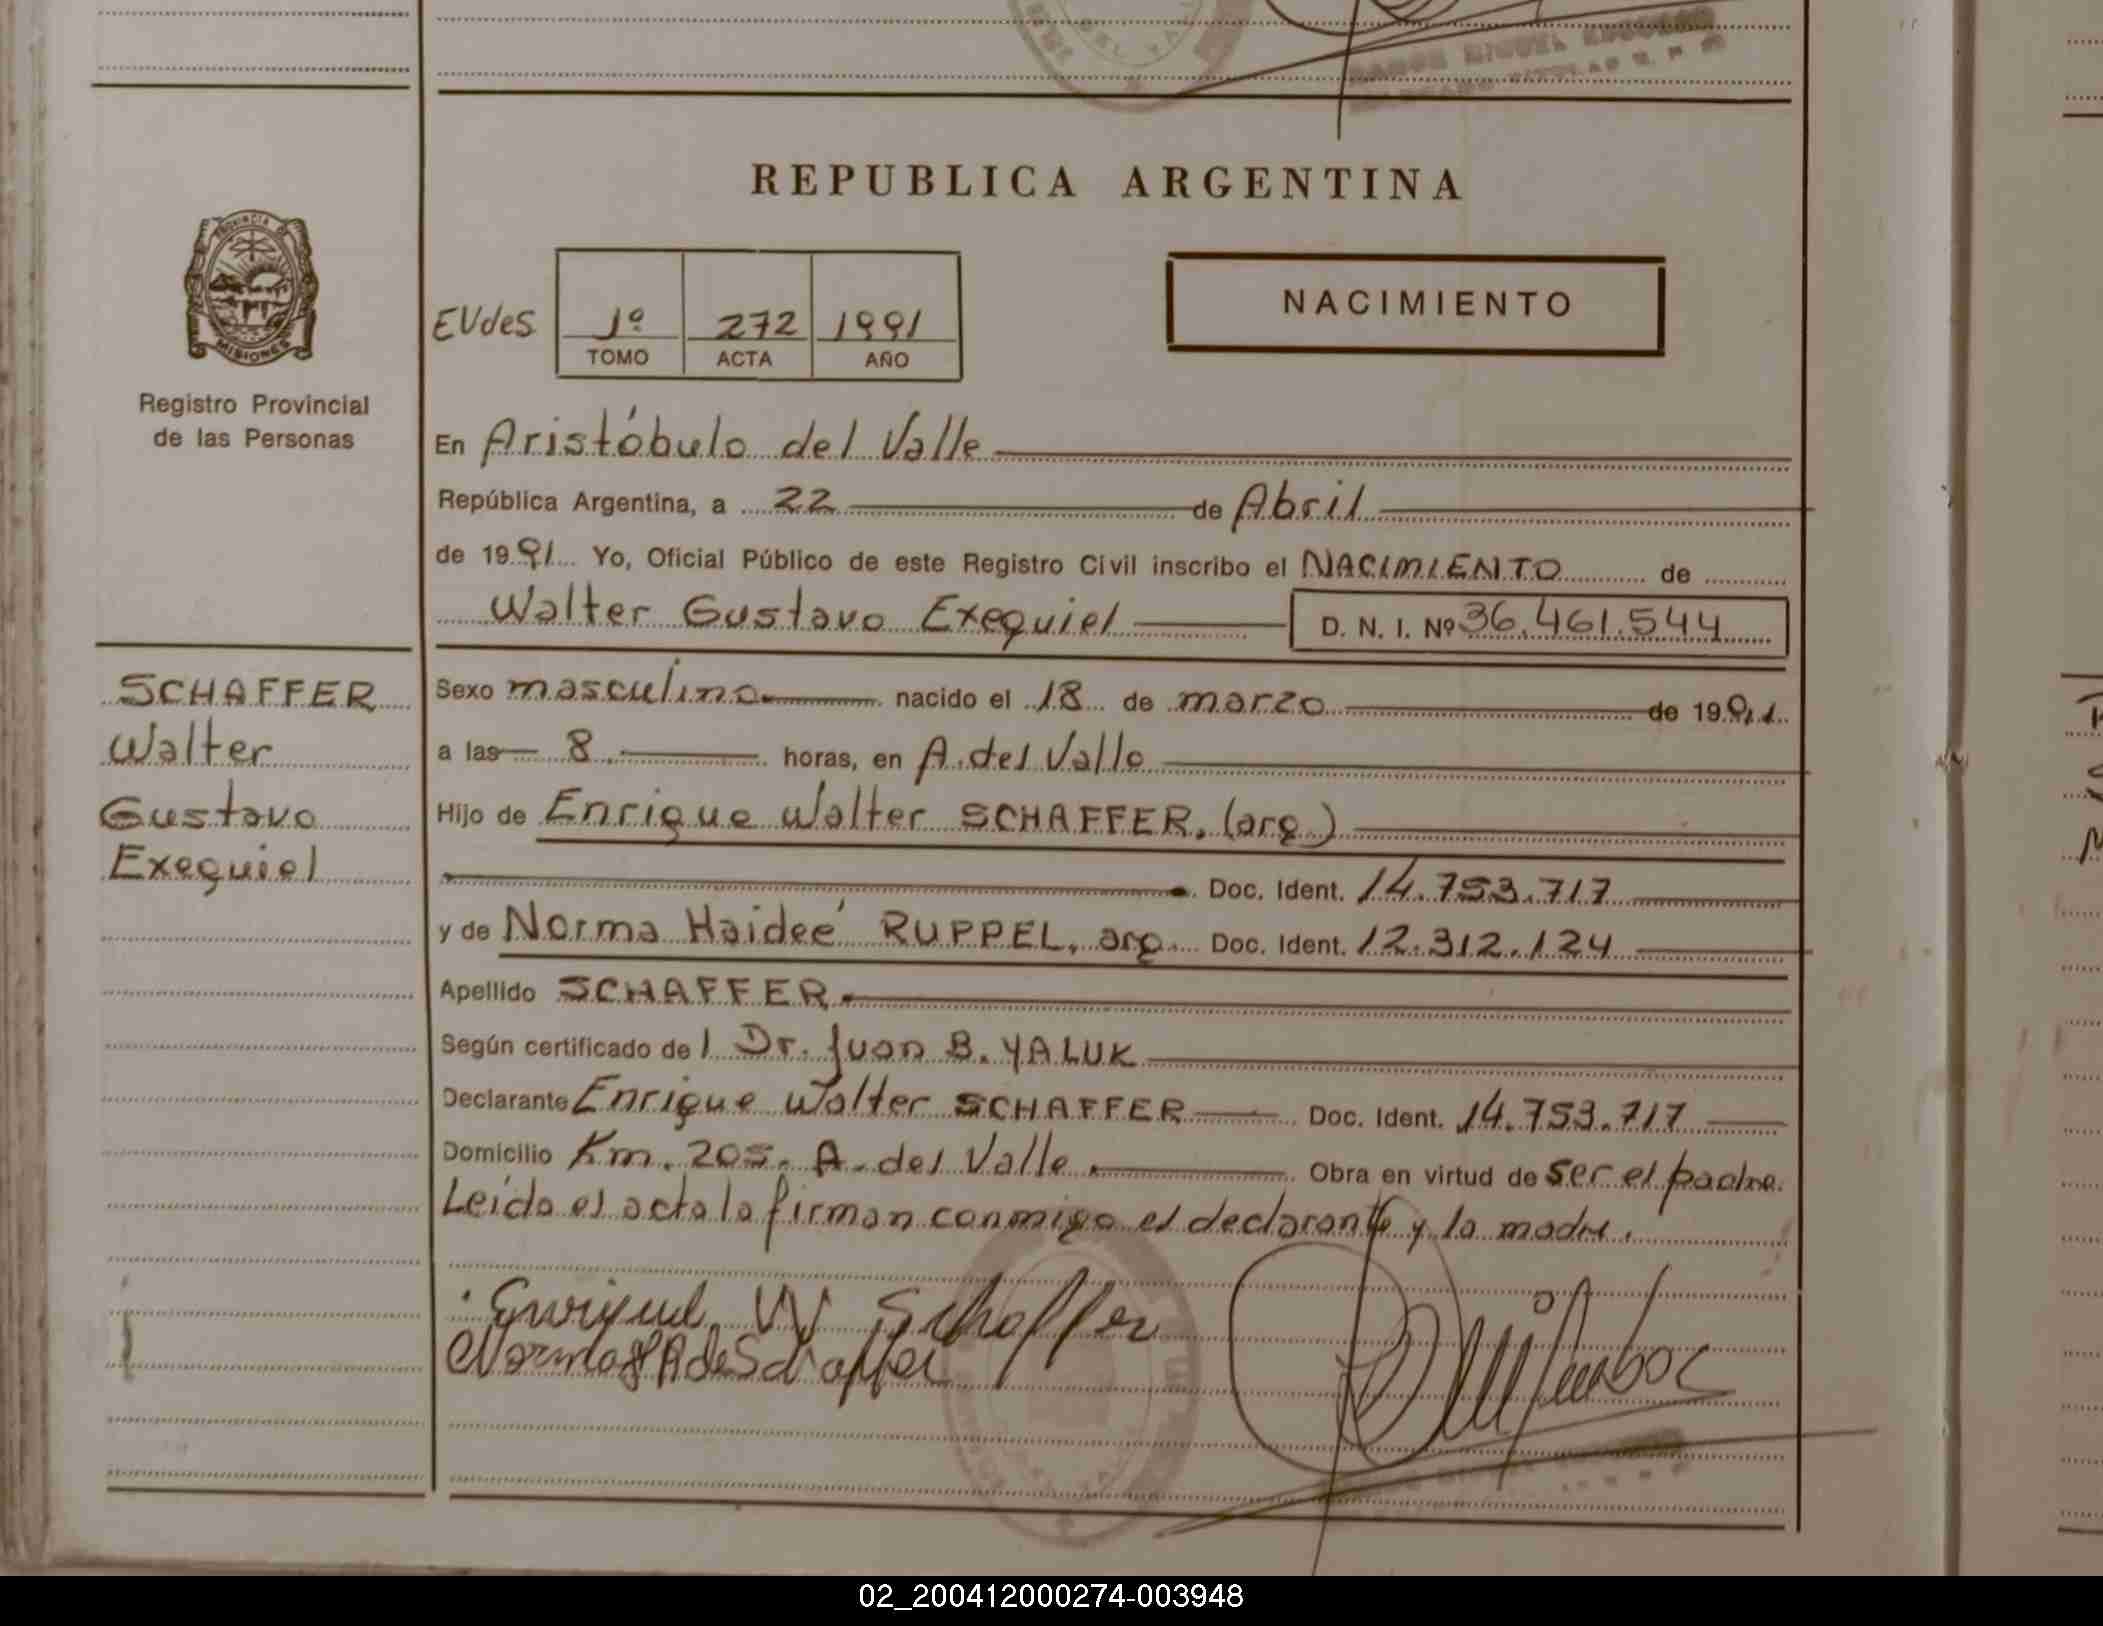 REPUBLICA ARGENTINA
PROVINCIA DE
MISIONES
Registro Provincial
de las Personas
EVdeS
1º 272 1991
TOMO ACTA AÑO
NACIMIENTO
En Aristóbulo del Valle
República Argentina, a 22 de Abril
de 1991 Yo, Oficial Público de este Registro Civil inscribo el NACIMIENTO de
Walter Gustavo Exequiel D. N. I. Nº 36.461.544
SCHAFFER
Walter
Gustavo
Exequiel
Sexo masculino nacido el 18 de marzo de 1991
a las 8 horas, en A. del Valle
Hijo de Enrique Walter SCHAFFER. (arg)
Doc. Ident. 14.753.717
y de Norma Haideé RUPPEL, arg. Doc. Ident. 12.312.124
Apellido SCHAFFER
Según certificado del Dr. Juan B. YALUK
Declarante Enrique Walter SCHAFFER Doc. Ident. 14.753.717
Domicilio Km. 205. A. del Valle Obra en virtud de ser el padre.
Leído el acta la firman conmigo el declarante y la madre.
Enrique W Schaffer
Norma H R de Schaffer
02_200412000274-003948